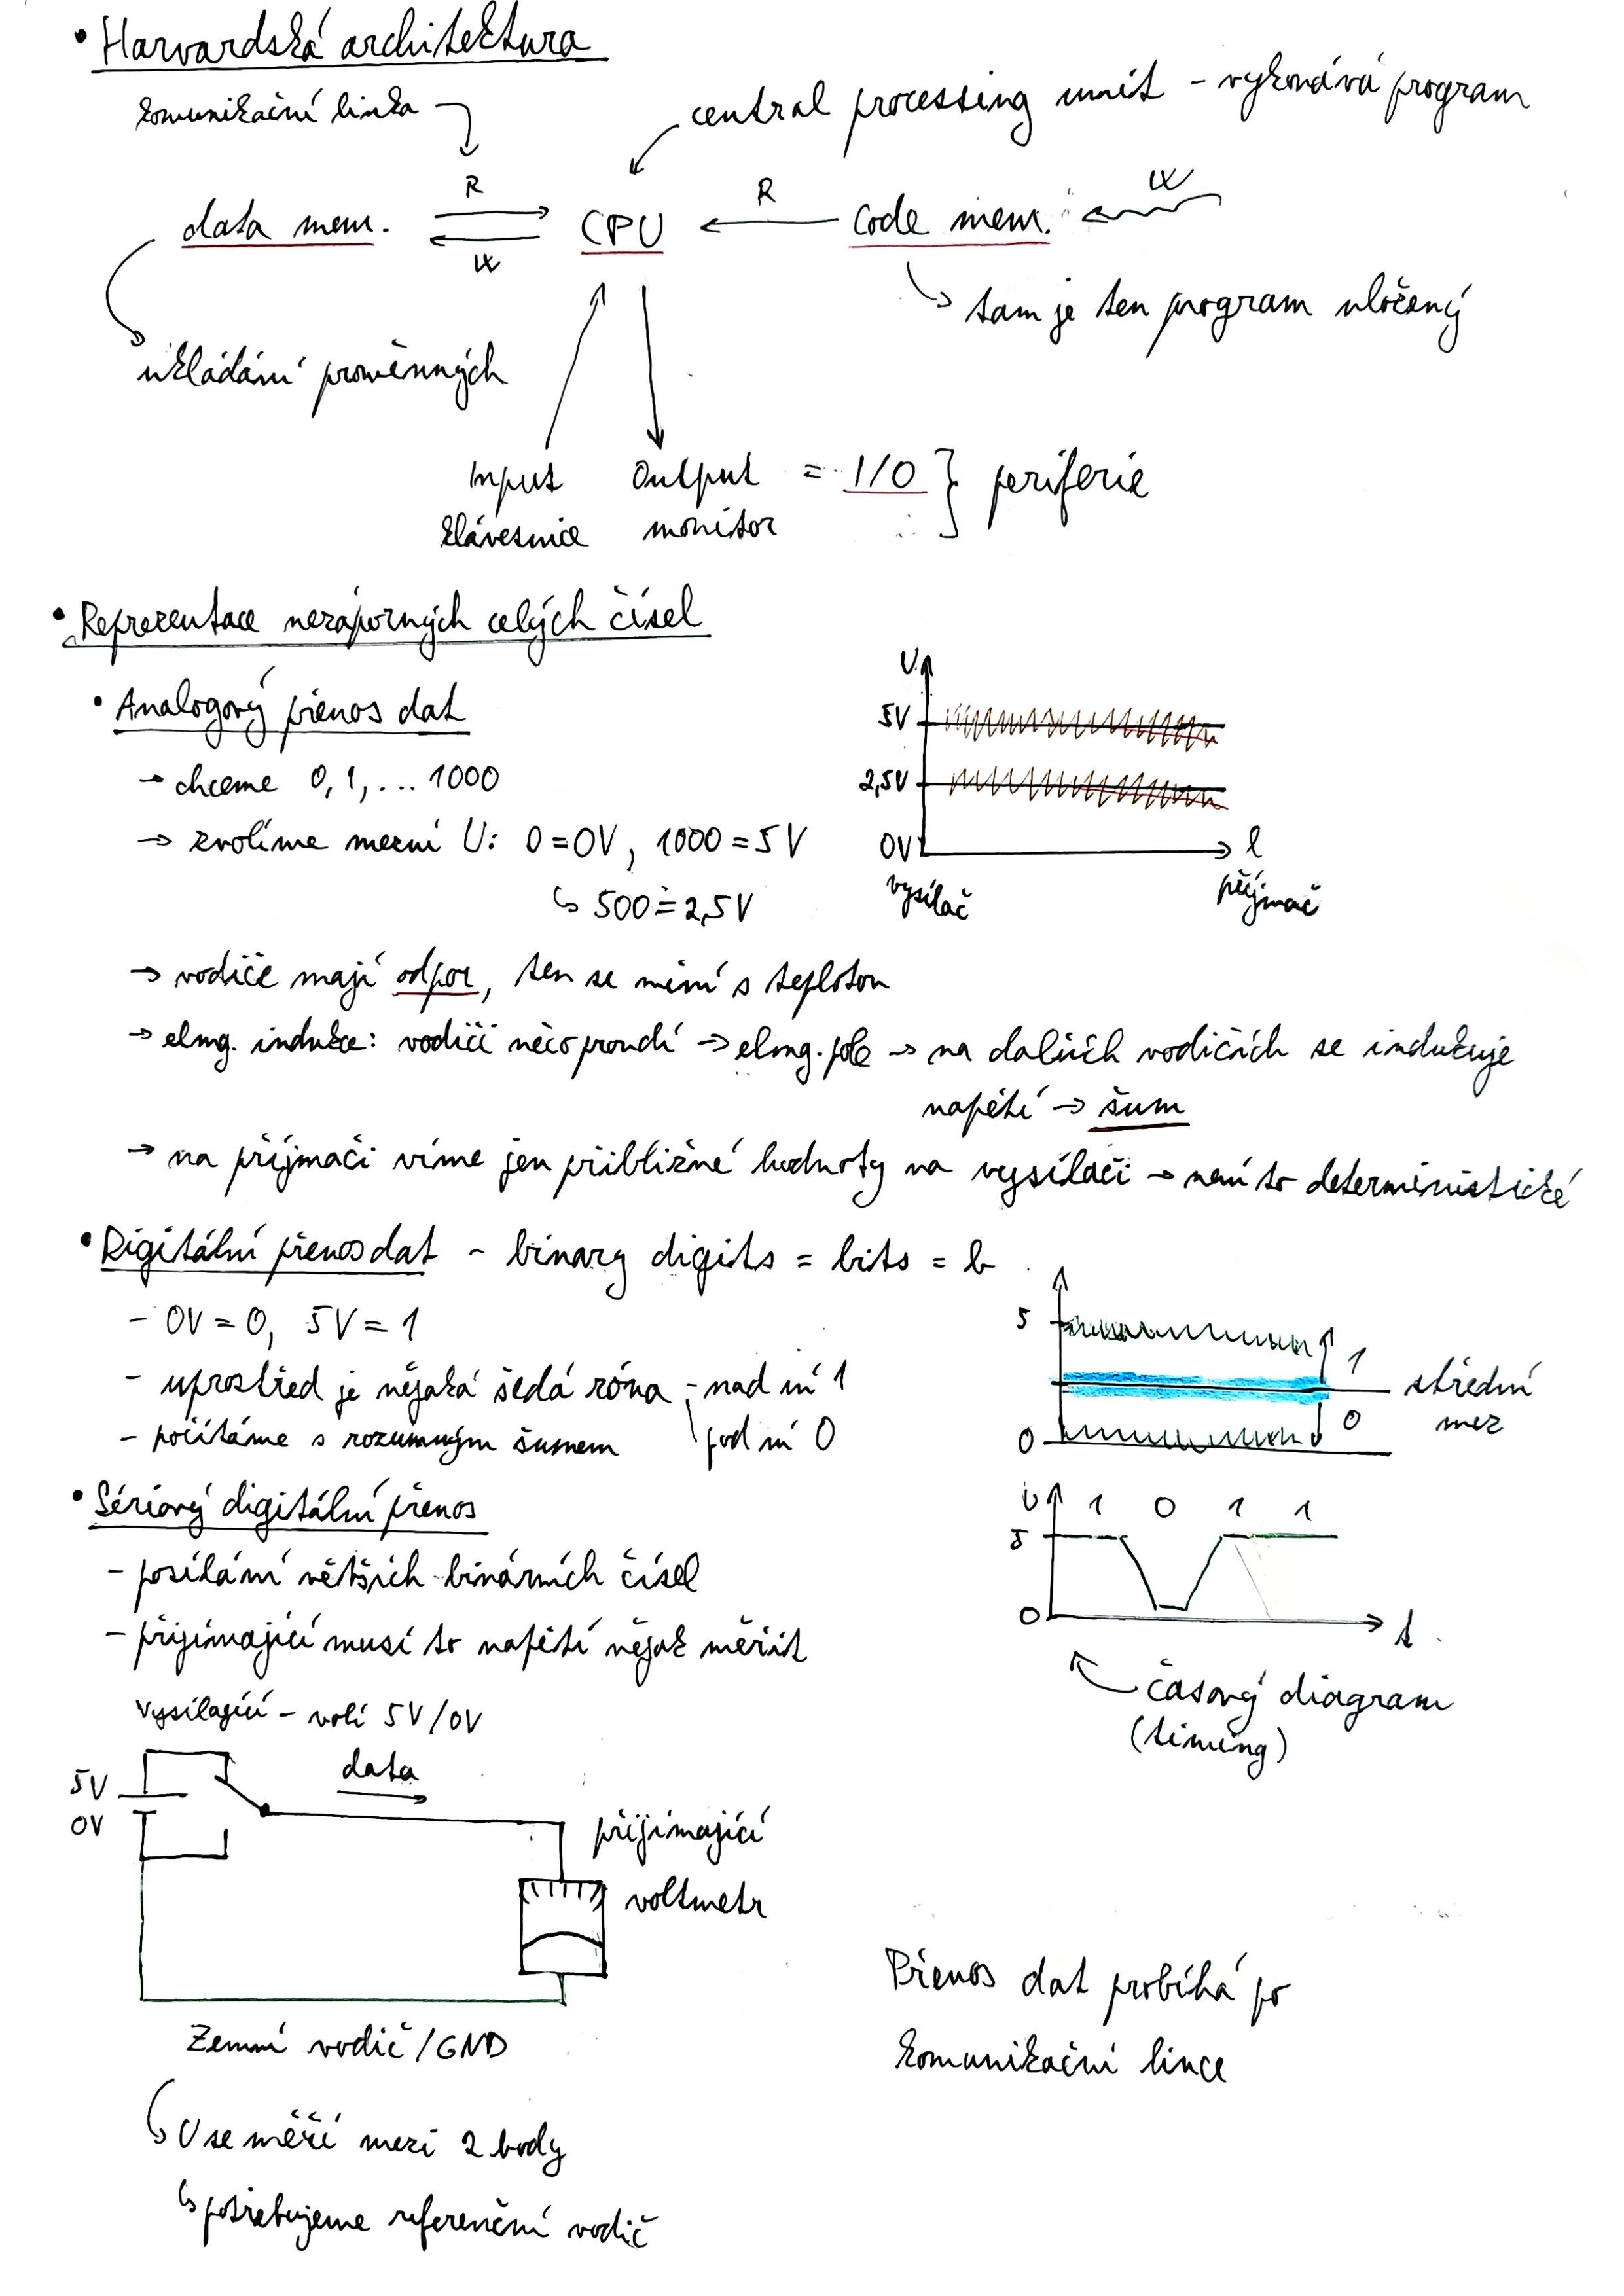 • Harvardská architektura
komunikační linka
central processing unit - vykonává program
R
R
W
data mem.
CPU
Code mem.
W
tam je ten program uložený
ukládání proměnných
Input Output = I/O } periferie
klávesnice monitor
• Reprezentace nezáporných celých čísel
• Analogový přenos dat
→ chceme 0, 1, ... 1000
→ zvolíme mezní U: 0=0V, 1000=5V
↳ 500≐2,5V
U
5V
2,5V
0V
l
vysílač
příjmač
→ vodiče mají odpor, ten se mění s teplotou
→ elmg. indukce: vodičí něco proudí → elmg. pole → na dalších vodičích se indukuje
napětí → šum
→ na příjmači víme jen přibližné hodnoty na vysílači → není to deterministické
• Digitální přenos dat - binary digits = bits = b
- 0V = 0, 5V = 1
- uprostřed je nějaká šedá zóna - nad ní 1
- počítáme s rozumným šumem
pod ní 0
5
1
střední
mez
0
0
• Sériový digitální přenos
- posílání větších binárních čísel
- přijímající musí to napětí nějak měřit
U 1 0 1 1
5
0
t
časový diagram
(timing)
vysílající - volí 5V/0V
data
5V
0V
přijímající
voltmetr
Zemní vodič/GND
↳ U se měří mezi 2 body
↳ potřebujeme referenční vodič
Přenos dat probíhá po
komunikační lince